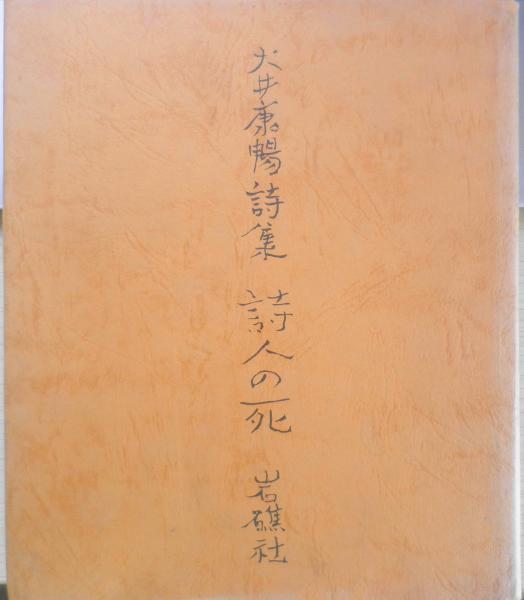 大井康暢詩集 詩人の死 岩礁社